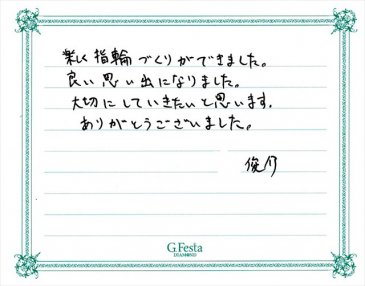 楽しい指輪づくりができました。
良い思い出になりました。
大切にしていきたいと思います。
ありがとうございました。
G.Festa
DIAMOND